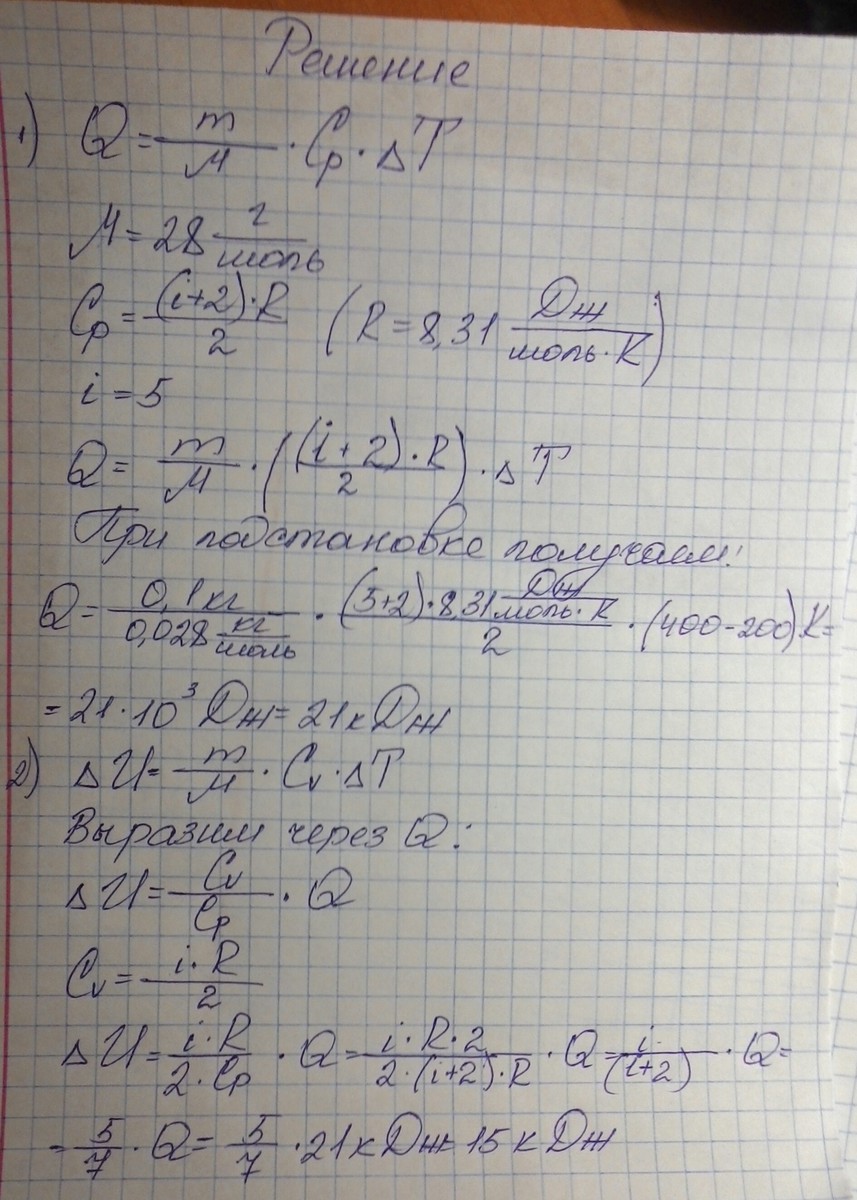 Решение
1) Q = m/M · Cp · ΔT
M = 28 г/моль
Cp = (i+2)·R/2 (R = 8,31 Дж/моль·K)
i = 5
Q = m/M · ((i+2)·R/2) · ΔT
При подстановке получаем:
Q = 0,1 кг/0,028 кг/моль · (5+2)·8,31 Дж/моль·K/2 · (400-200)K =
= 21·10³ Дж = 21 кДж
2) ΔU = m/M · Cv · ΔT
Выразим через Q:
ΔU = Cv/Cp · Q
Cv = i·R/2
ΔU = i·R/2·Cp · Q = i·R·2/2·(i+2)·R · Q = i/(i+2) · Q =
= 5/7 · Q = 5/7 · 21 кДж = 15 кДж